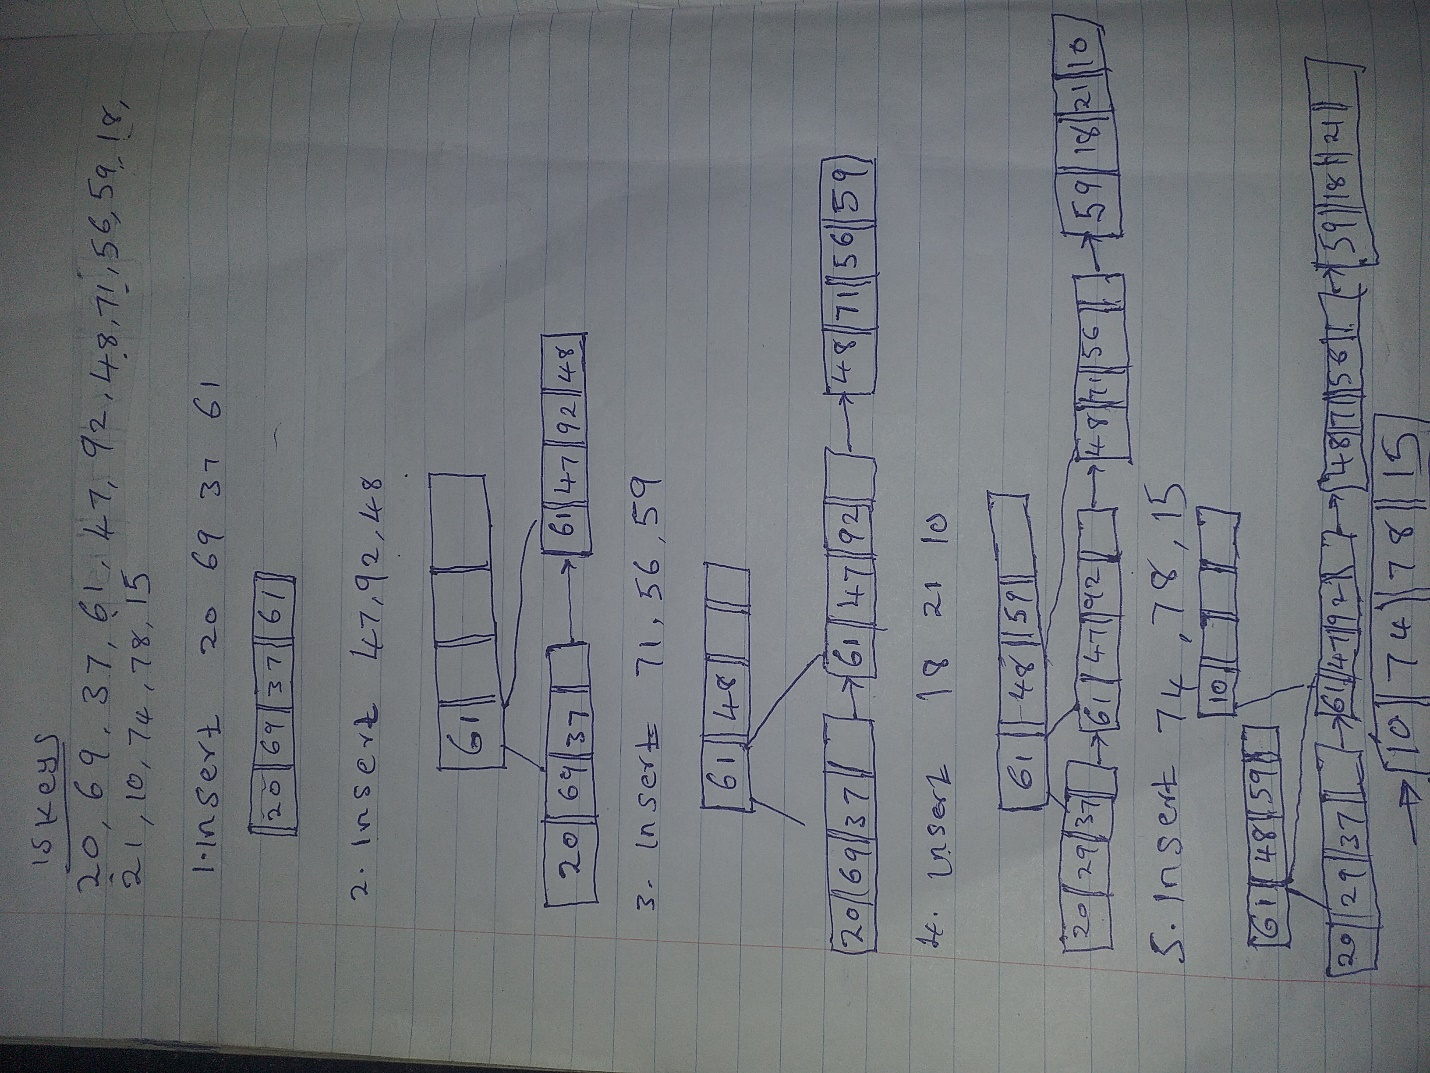 15 keys
20, 69, 37, 61, 47, 92, 48, 71, 56, 59, 18,
21, 10, 74, 78, 15
1. Insert 20 69 37 61
20 69 37 61
2. Insert 47, 92, 48
61
20 69 37 → 61 47 92 48
3. Insert 71, 56, 59
61 48
20 69 37 → 61 47 92 → 48 71 56 59
4. Insert 18 21 10
61 48 59
20 29 37 → 61 47 92 → 48 71 56 → 59 18 21 10
5. Insert 74, 78, 15
10
61 48 59
20 29 37 → 61 47 92 → 48 71 56 → 59 18 21
→ 10 74 78 15